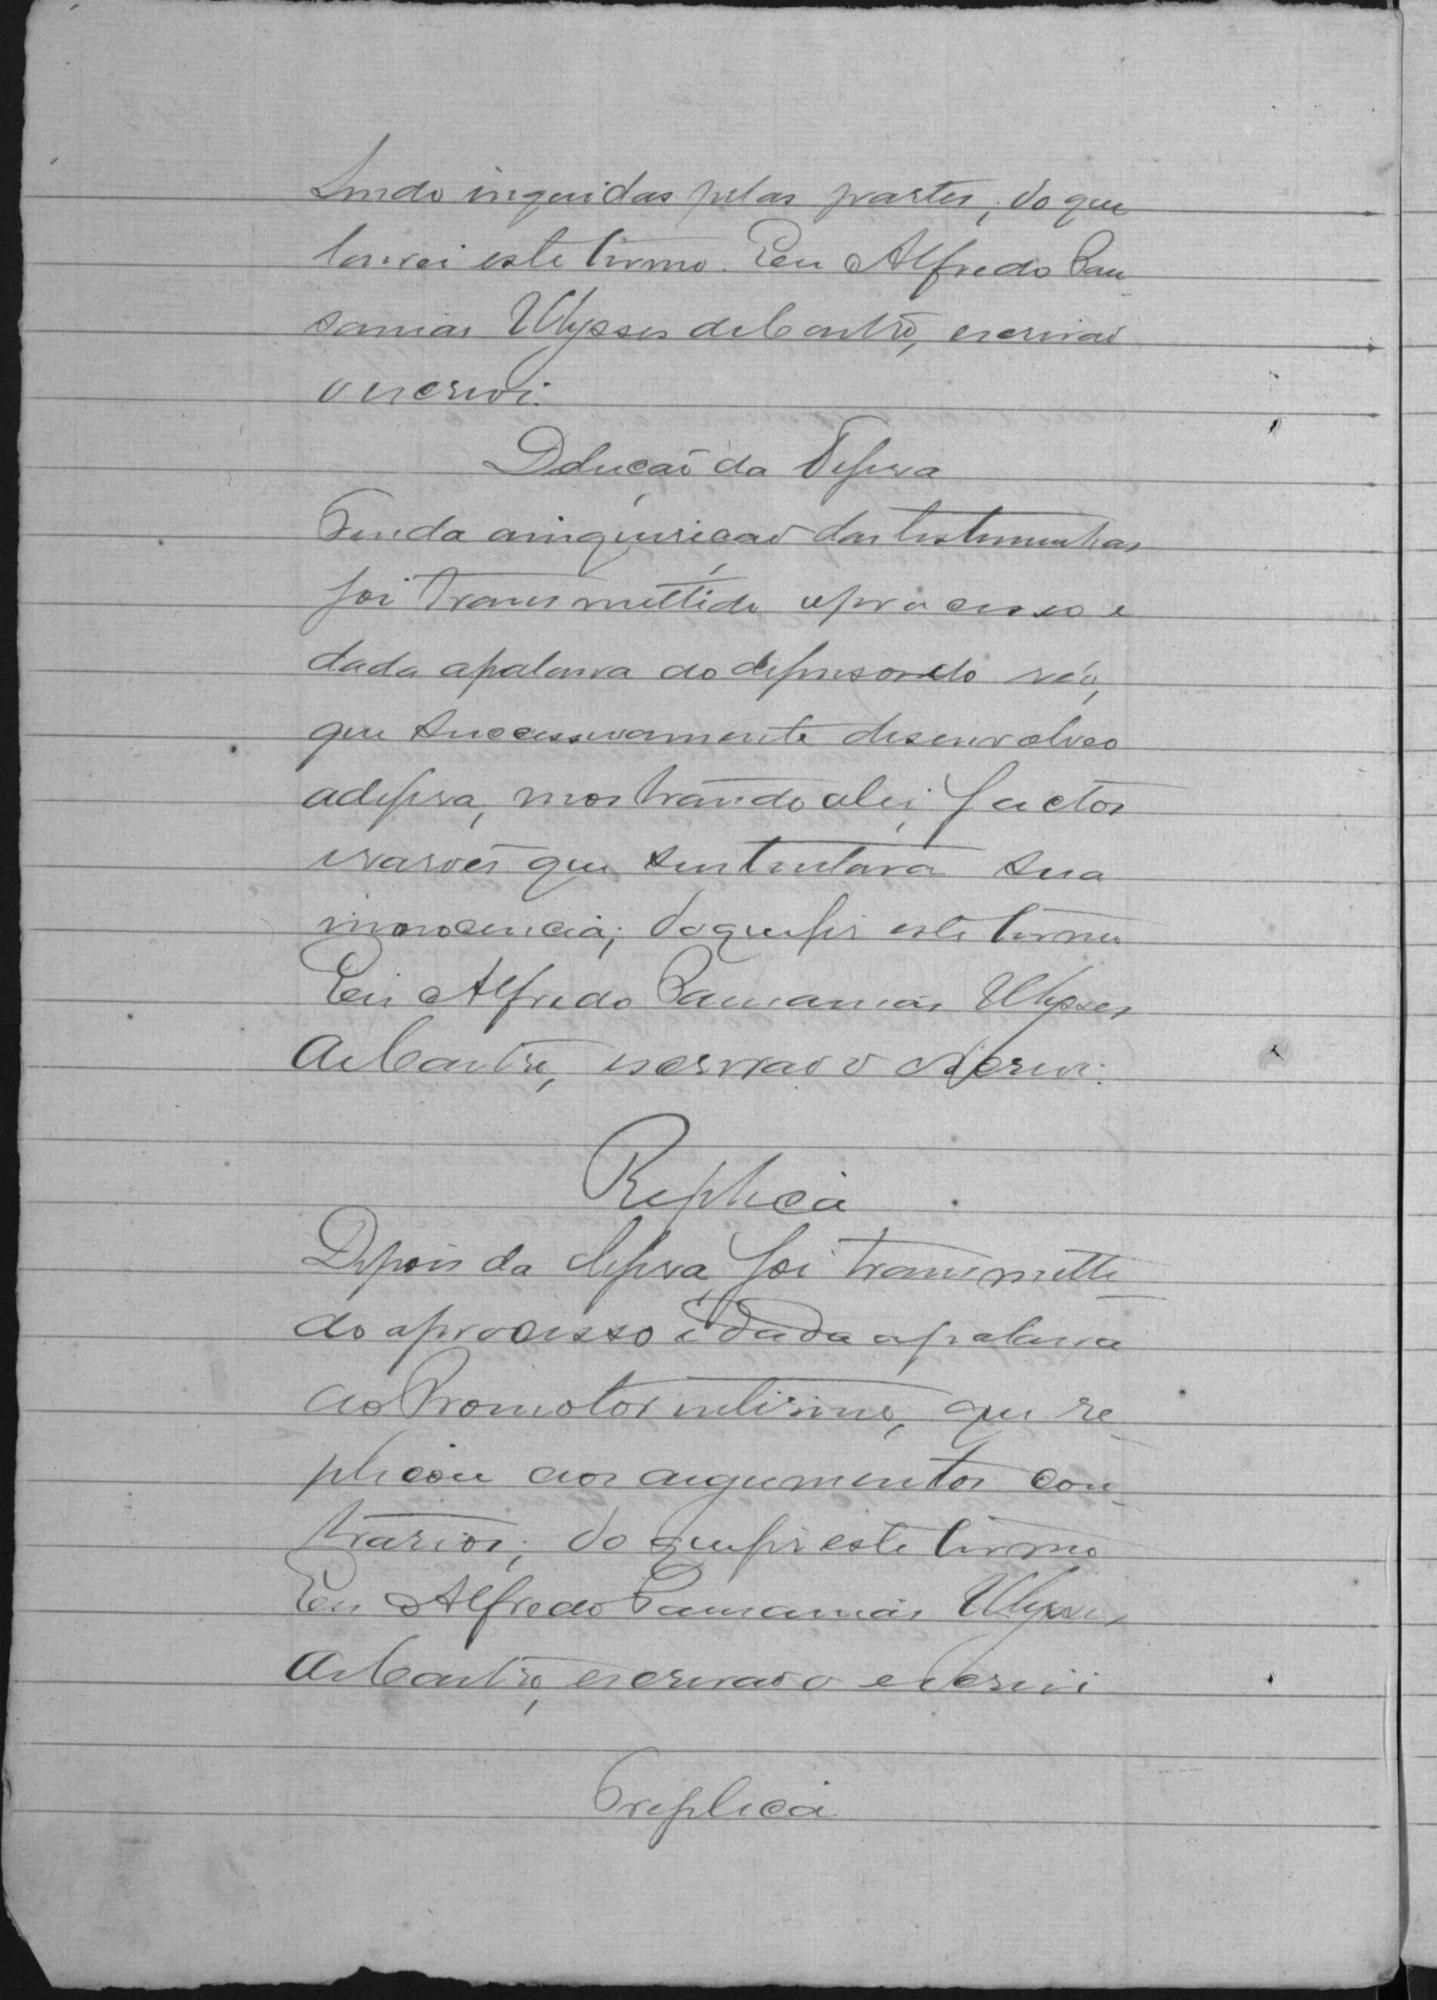 sendo inqueridas pelas partes, do que
lavrei este termo. Eu Alfredo Pau-
sanias Ulysses de Castro, escrivão
o escrevi.
Deducção da Defesa
Finda a inquirição das testemunhas
foi transmettido o processo e
dada a palavra ao defensor do réo,
que successivamente desenvolveo
a defesa, mostrando a lei, factos
e rasões que sustentavão sua
innocencia; do que fis este termo
Eu Alfredo Pausanias Ulysses
de Castro, escrivão o escrevi.
Replica
Depois da defesa, foi transmetti-
do o processo e dada a palavra
ao Promotor interino, que re-
plicou aos argumentos con-
trarios; do que fis este termo
Eu Alfredo Pausanias Ulysses
de Castro, escrivão o escrevi
Treplica